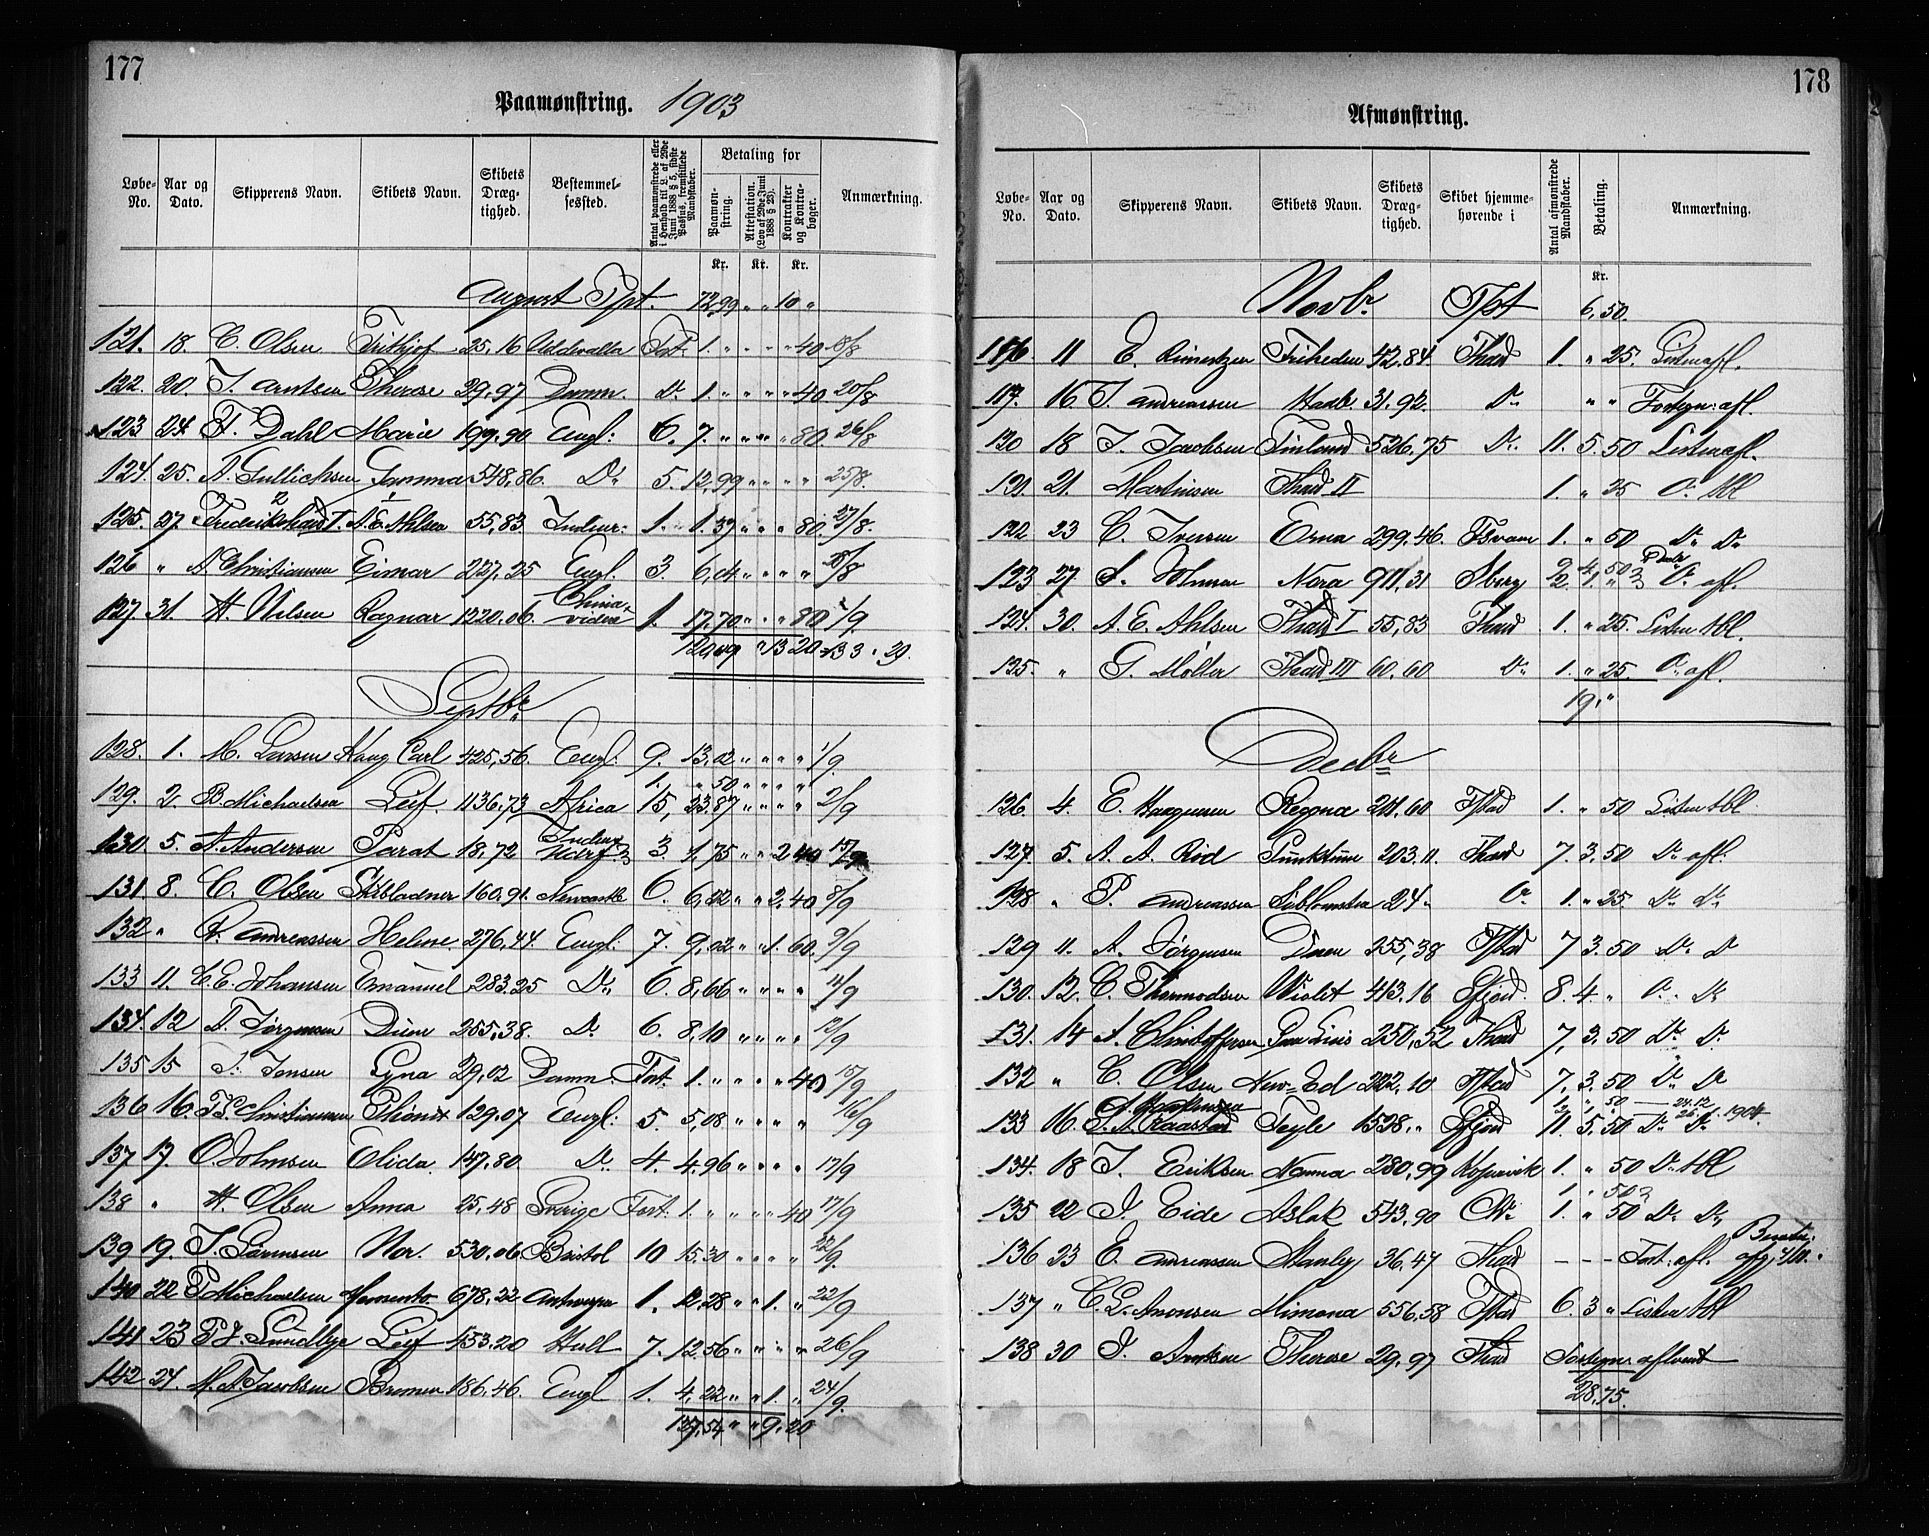 177
Paamønstring. 1903
Løbe-No. Aar og Dato. Skipperens Navn. Skibets Navn. Skibets Dræg-tighed. Bestemmel-sessted. Antal paamønstrede eller i Henhold til L. af 29de Juni 1888 § 5, sidste Passus, fremstillede Mandskaber. Betaling for Paamøn-string. Attestation. (Lov af 29de Juni 1888 § 23). Kontrakter og Kontra-bøger. Anmærkning.
Kr. Kr. Kr.
August Tspt. 72,99 " " 10 "
121. 18. C. Olsen Frithjof 25,16 Uddevalla Fort. 1. " " " " 40 18/8
122. 20. J. Arntsen Therese 29,97 Danm. Do 1. " " " " 40 20/8
123 24 H. Dahl Marie 199.90 Engl: 6. 7. " " " " 80. 26/8
124. 25. A. Gullichsen Gamma 548,86 Do 5. 12,99 " " " " 25/8.
125. 27 Frederikshald I. A. E. Ahlsen 55,83 Indenr: 1. 1.37 " " " 80. 27/8.
126 " A. Christiansen Eimar 227,25 Engl. 3. 6,04 " " " " 28/8
127. 31. H. Nilsen Ragnar 1220.06 China 1. 17.70 " " " 80 2/9.
" 13 20 133 " 29.
Septbr
128. 1. M. Larsen Haug Carl 425,56 Engl. 9. 13,02 " " " " 1/9.
1. " 50 " " " "
129. 2. B. Michaelsen Leif 1136.73 Africa 15, 23.87 " " " " 2/9
130. 5. A. Andersen Parat 18,72 3. 1,75 " " 2 40
131. 8. C. Olsen Skibladner 160.91 Newcastle 6. 6,22 " " 2,40 8/9
132 " A. Andreassen Helene 276,44. Engl: 7. 9,02 " " 1. 60. 9/9
133 11. C. E. Johansen Emanuel 283.25 Do 6. 8,66 " " " " 11/9
134. 12 A. Jørgensen Duen 255,38. Do 6. 8,10 " " " " 12/9
135 15 J. Jensen Gyna 29,02 Danm. Fort. 1. " " " " 40 15/9
136 16. Christiansen Phønix 129.07 Engl: 5. 5,08 " " " " 16/9
137 17. O. Johnsen Elida 147.80 Do 4. 4.96 " " " " 17/9
138 " H. Olsen Anna 25,48 Sverige Fort. 1. " " " " 40 17/9
139 19. J. Sørensen Nor. 530.06 Bristol 10 15.30 " " " " 22/9.
140 22 P. Michaelsen Memento 678,22 Antwerpen 1. 12,28 " " 1. " 22/9
141 23 P. J. Lundbye Leif 453.20 Hull 7. 12.56 " " " " 26/9
142 24. M. A. Jacobsen Brumen 186.46. Engl 1. 4,22 " " 1. " 24/9.
137,54 " " 9. 20
178
Afmønstring.
Løbe-No. Aar og Dato. Skipperens Navn. Skibets Navn. Skibets Dræg-tighed. Skibet hjemme-hørende i Antal afmønstrede Mandskaber. Betaling. Anmærkning.
Kr.
Novbr. Tspt 6,50.
116 11 E. Friheden 42.84. Fhald 1. " 25. Listen afl.
117. 16. J. Andreassen Haab. 31.92. Do " " Fortegn: afl.
120 18 J. Jacobsen Finland 526,75 Do 11. 5.50 Listen afl.
121. 21. Martinsen Fhald II 1. " 25 Do tbl
122 23 C. Iversen Erna 299.46. Tsvær 1. " 50 Do Do
123 27 S. Johnsen Nora 911,31 Sberg Do afl.
124. 30. A. E. Ahlsen Fhald I 55,83 Fhald 1. " 25. Listen tbl.
125. " G. Møller Fhald III 60,60 Do 1. " 25. Do afl.
19. "
Decbr
126. 4. E. Haagensen Regna 211.60 Fstad 1. " 50 Listen tbl.
127. 5. A. A. Rød Punktum 203.11. Fhald 7. 3.50 Do afl.
128 " P. Andreassen 24 " Do 1. " 25. Do Do
129 11. A. Jørgensen Duen 255,38 Fstad 7 3.50 Do D
130. 12. C. Thormodsen Violet 413,16 Sfjord. 8. 4 " Do Do
131. 14 A. Christoffersen 250,52 Fhald 7, 3.50 Do Do
132 " C. Olsen New-Ed 222.10 Fstad 7, 3.50 Do Do
1. " 50 — 24.12
26.1.1904.
133 16. J. A. Kaastad Teyle 1538. " Sfjord 11. 5.50 Do Do
134. 18 J. Eriksen Nanna 280,99 Kopervik 1. " 50 Do tbl
1. " 50
135 22 J. Eide Aslak 543.90 1. " 50 Do Do
136 23 E. Andreassen Stanley 36,47 Fhald — — — Fort: afl.
137 " C. L. Aronsen Mimona 556,58 Fstad 6. 3 " Listen tbl
138 30 J. Arntsen Therese 29,97 Fhald Fortegn: afleveret
28,75.